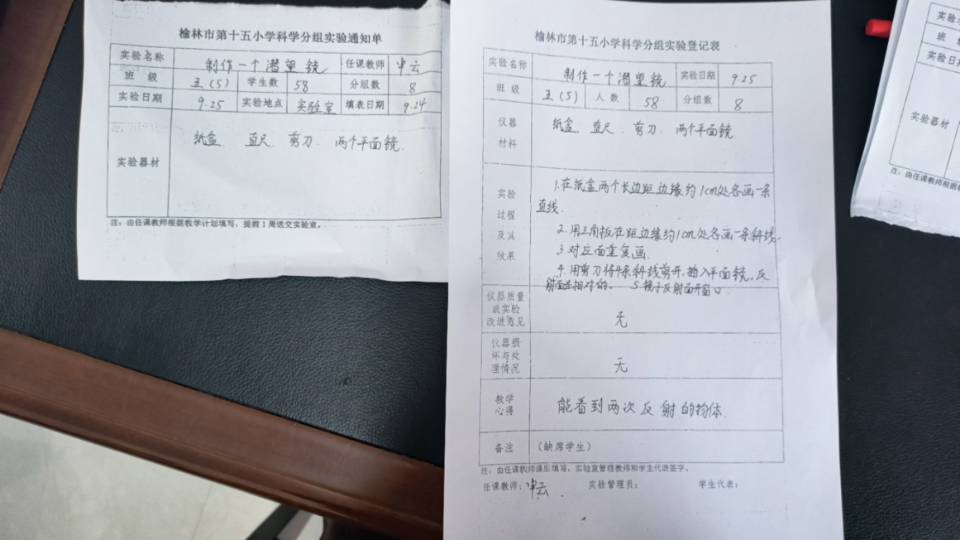 榆林市第十五小学科学分组实验通知单
实验名称 制作一个潜望镜 任课教师 申云
班级 五(5) 学生数 58 分组数 8
实验日期 9.25 实验地点 实验室 填表日期 9.24
实验器材 纸盒 直尺、剪刀、两个平面镜
注:由任课教师根据教学计划填写,提前1周送交实验室。
榆林市第十五小学科学分组实验登记表
实验名称 制作一个潜望镜 实验日期 9.25
班级 五(5) 人数 58 分组数 8
仪器材料 纸盒 直尺、剪刀、两个平面镜
实验过程及其效果
1.在纸盒两个长边距边缘约1cm处各画一条
直线.
2.用三角板在距边缘约1cm处各画一条斜线.
3.对应面重复画.
4.用剪刀将4条斜线剪开,插入平面镜,反
射面是相对的. 5.镜子反射面开窗口.
仪器质量或实验改进意见 无
仪器损坏与处理情况 无
教学心得 能看到两次反射的物体
备注 (缺席学生)
注:由任课教师课后填写,实验室管理教师和学生代表签字。
任课教师:申云 实验管理员: 学生代表:
实验名
班
实验日
实验器材
注:由任课教